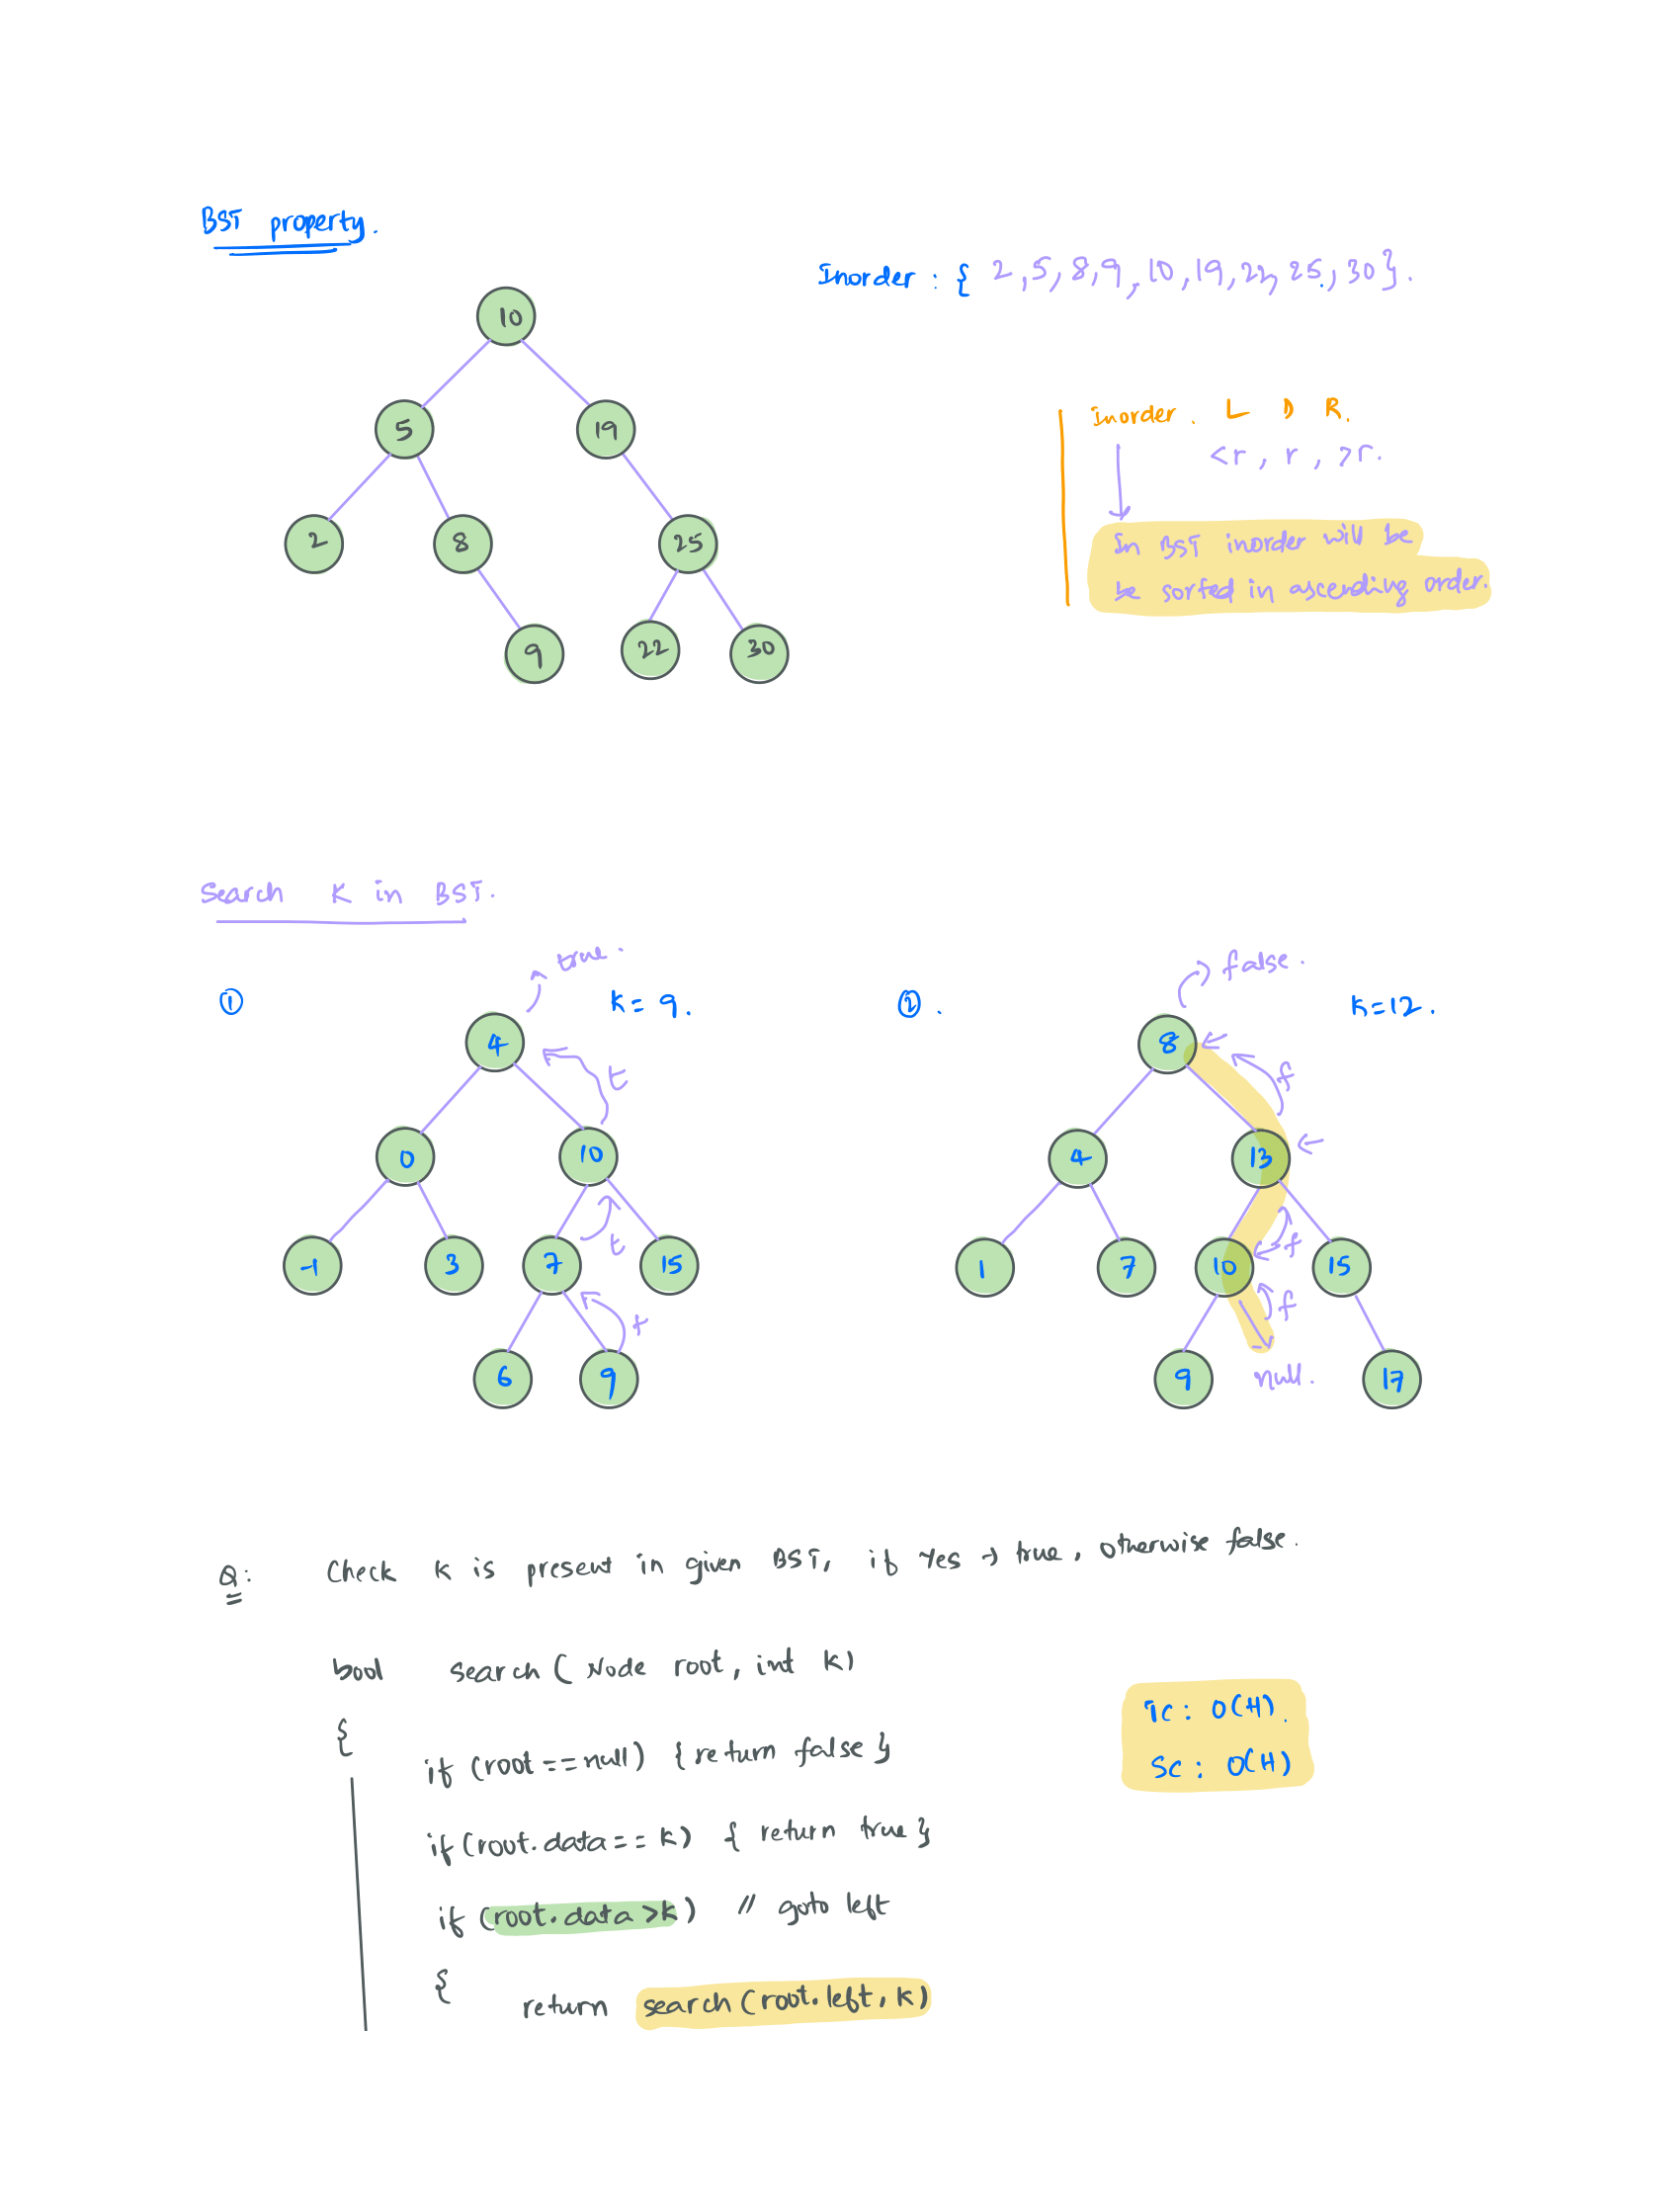 BST property.
Inorder : { 2,5,8,9,10,19,22,25,30}.
10
5 19
2 8 25
9 22 30
inorder. L D R.
<r, r, >r.
In BST inorder will be
be sorted in ascending order.
Search K in BST.
① true. K= 9.
4
t
0 10
t
-1 3 7 15
t
6 9
②. false. K=12.
8
f
4 13
f
1 7 10 15
f
9 null. 17
Q: Check K is present in given BST, if Yes → true, otherwise false.
bool search( Node root, int K)
{
if (root==null) {return false}
if(root.data==K) { return true}
if (root.data>K) // goto left
{
return search(root.left, K)
TC: O(H).
SC: O(H)